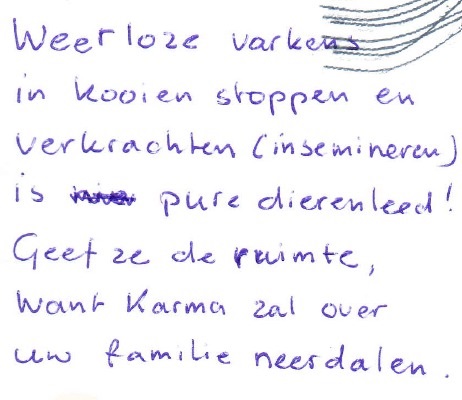 Weerloze varkens
in kooien stoppen en
verkrachten (insemineren)
is pure dierenleed!
Geef ze de ruimte,
want Karma zal over
uw familie neerdalen.